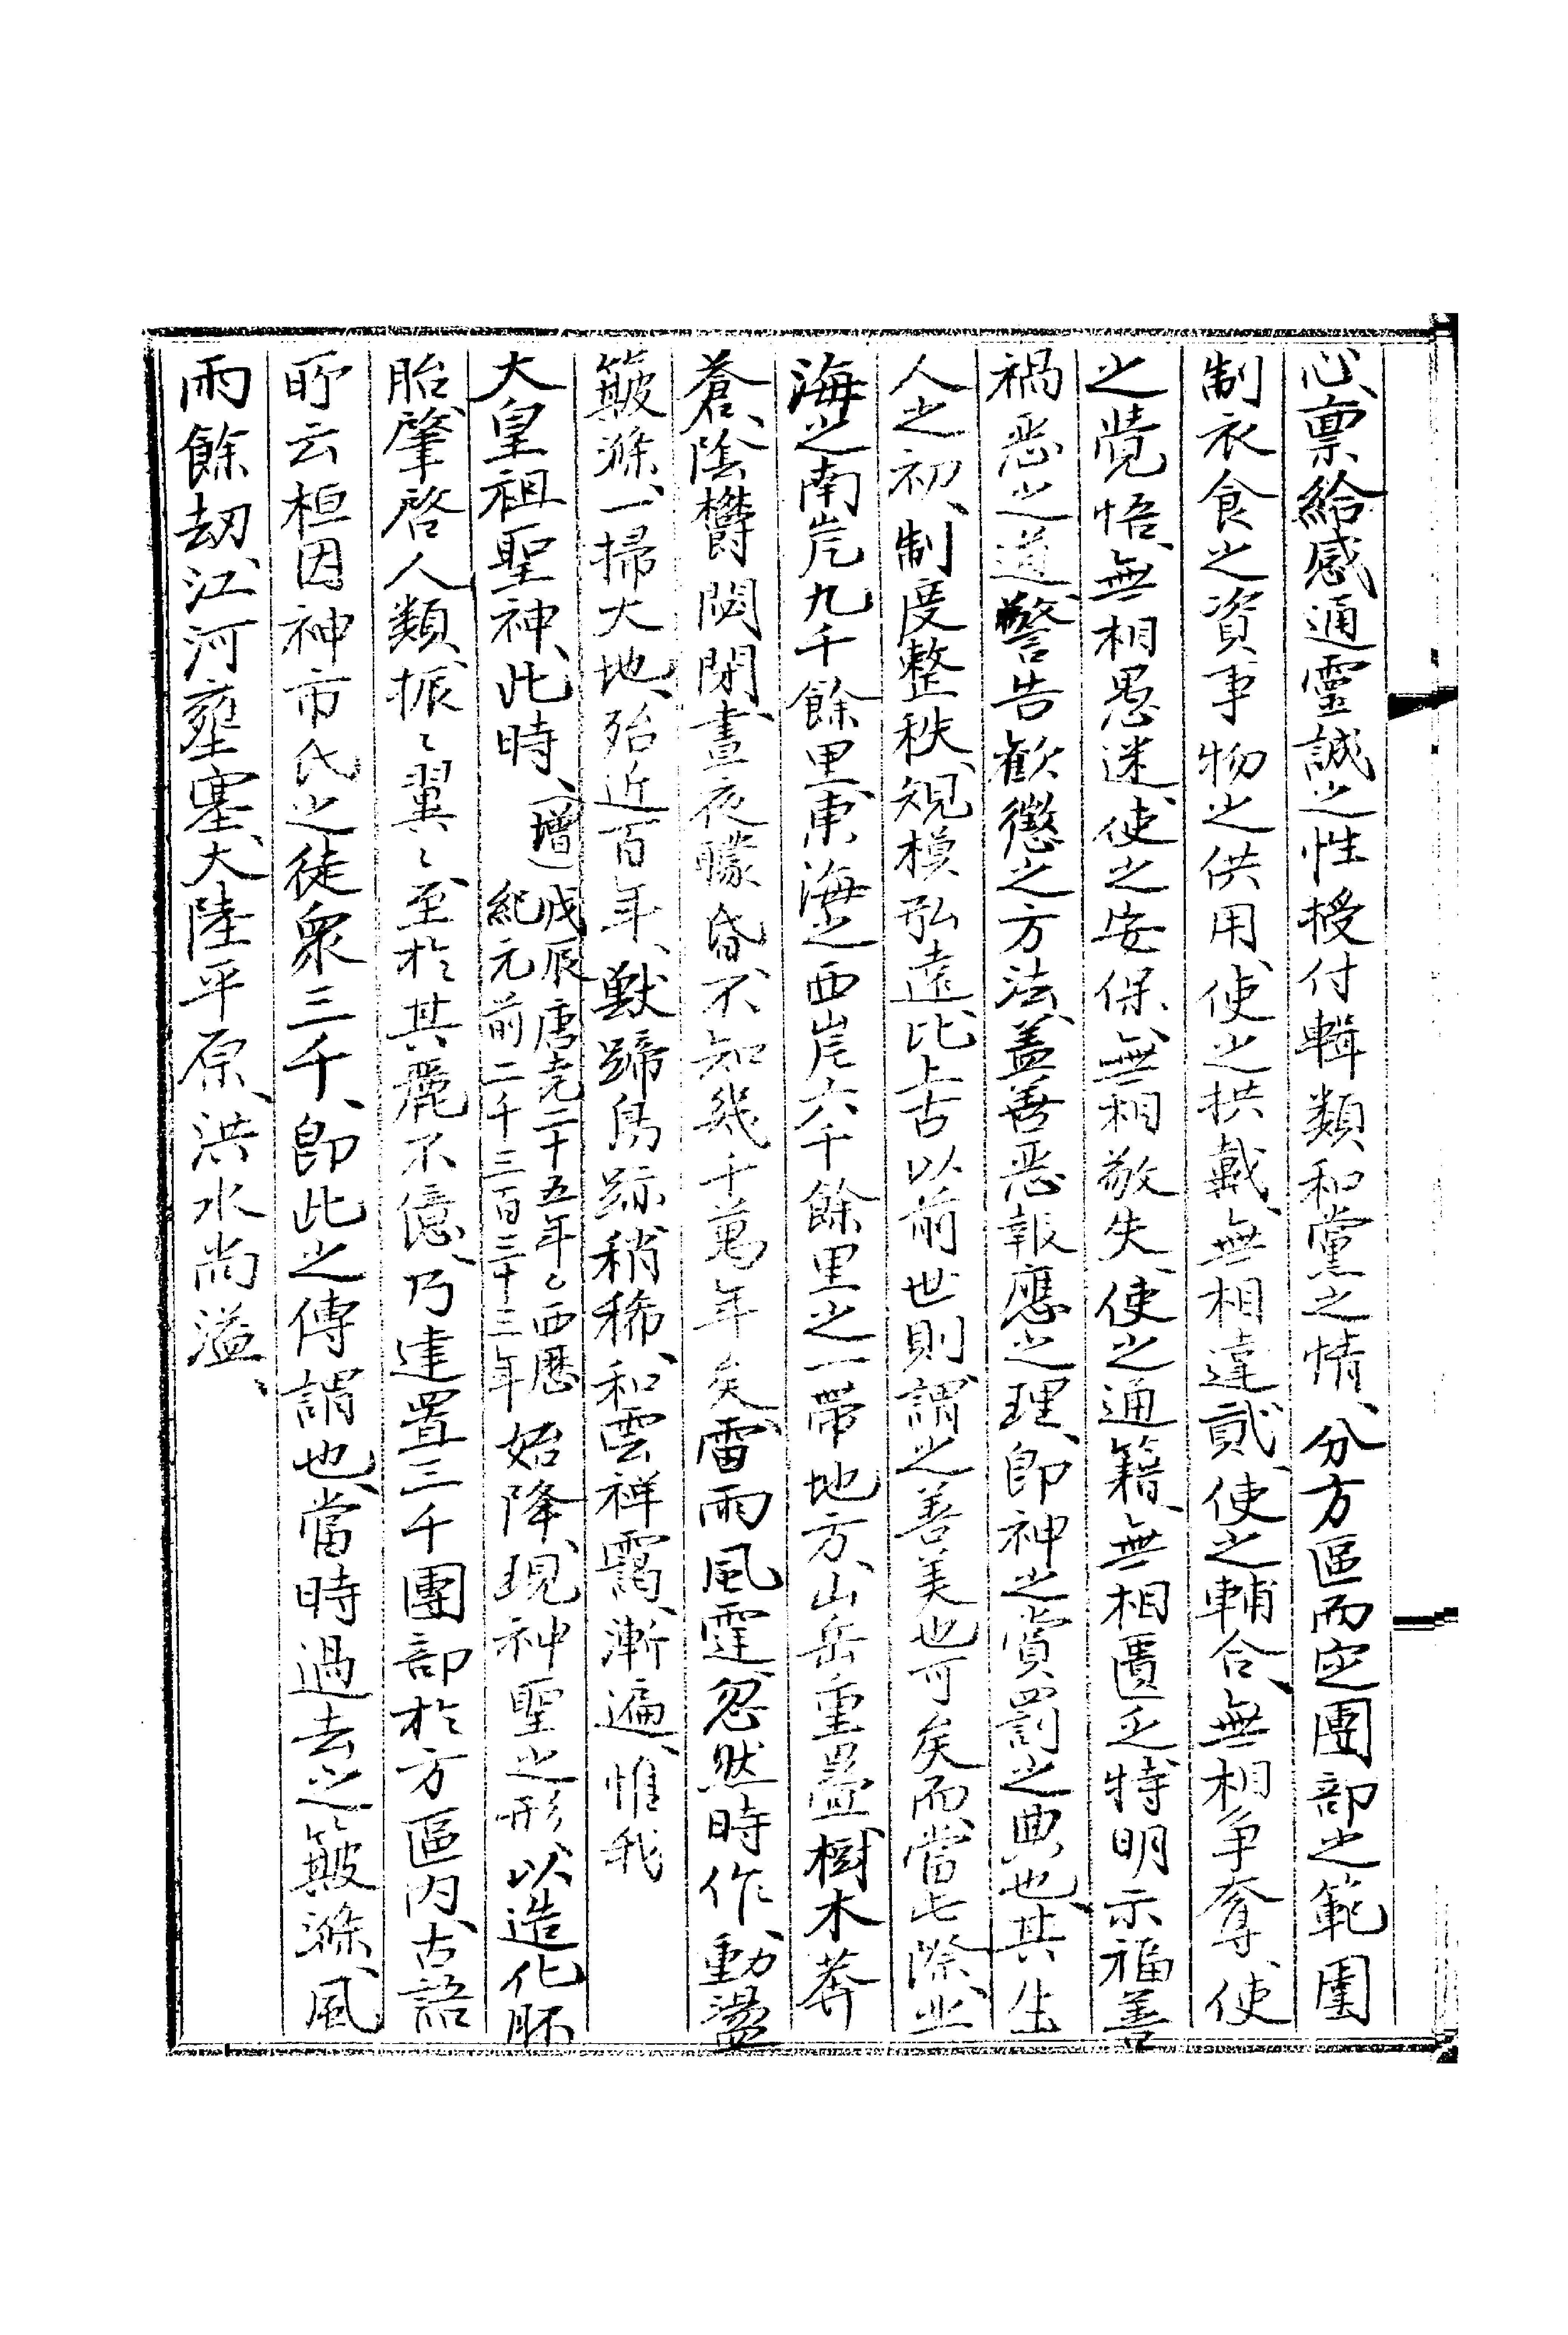 心、禀給感通靈誠之性授付輯類和黨之情、分方區而定團部之範圍
制衣食之資事物之供用、使之拱戴、無相違貳、使之輔合、無相争奪、使
之覺悟、無相愚迷、使之安保、無相敬失、使之通籍、無相匱乏、特明示福善
禍惡之道、警告歓懲之方法、盖善惡報應之理、即神之賞罰之典也、其生
人之初、制度整秩、規模弘遠、比上古以前世則、謂之善美也可矣、而當此際、北
海之南岸九千餘里、東海之西岸六千餘里之一帶地方、山岳重疊、樹木莽
蒼、陰欝閎閉、晝夜矇昏、不知幾千萬年矣、雷雨風霆、忽然時作、動盪
簸滌、一掃大地、殆近百年、獸蹄鳥跡稍稀、和雲祥靄、漸遍、惟我
大皇祖聖神、此時、(增)戊辰唐尭二十五年○西歷紀元前二千三百三十三年始降、現神聖之形、以造化胚
胎、肇啓人類、振〻翼〻、至於其麗不億、乃建置三千團部於方區内、古語
所云桓因神市氏之徒衆三千、即此之傳謂也、當時過去之簸滌、風
雨餘刼、江河壅塞、大陸平原、洪水尚溢、